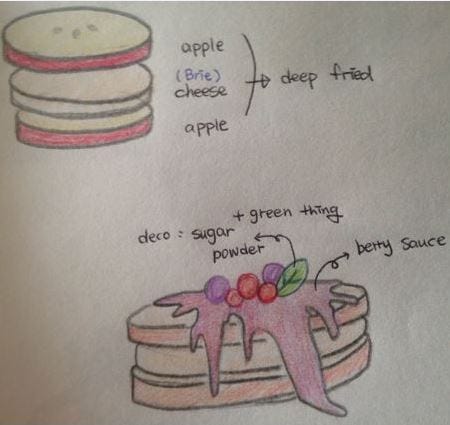 apple
(Brie)
cheese
apple
deep fried
+ green thing
deco : sugar
powder
berry sauce